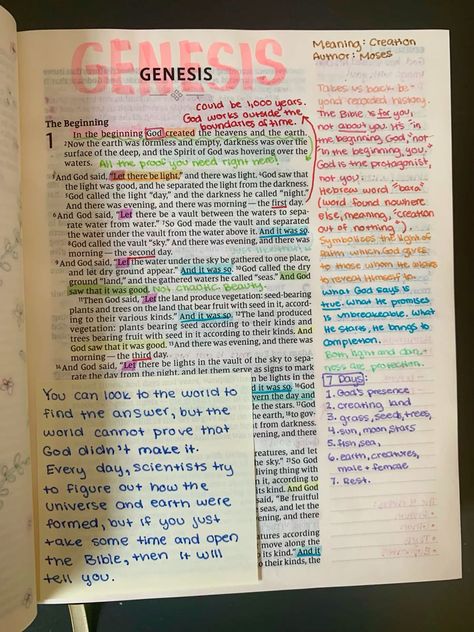 GENESIS
GENESIS
Meaning: Creation
Author: Moses
could be 1,000 years.
God works outside the
boundaries of time.
The Beginning
1 In the beginning God created the heavens and the earth.
2Now the earth was formless and empty, darkness was over the
surface of the deep, and the Spirit of God was hovering over the
waters. All the proof you need right here!
3And God said, "Let there be light," and there was light. 4God saw that
the light was good, and he separated the light from the darkness.
5God called the light "day," and the darkness he called "night."
And there was evening, and there was morning—the first day.
6And God said, "Let there be a vault between the waters to sepa-
rate water from water." 7So God made the vault and separated
the water under the vault from the water above it. And it was so.
8God called the vault "sky." And there was evening, and there was
morning—the second day.
9And God said, "Let the water under the sky be gathered to one place,
and let dry ground appear." And it was so. 10God called the dry
ground "land," and the gathered waters he called "seas." And God
saw that it was good. Not chaotic. Beauty.
11Then God said, "Let the land produce vegetation: seed-bearing
plants and trees on the land that bear fruit with seed in it, accord-
ing to their various kinds." And it was so. 12The land produced
vegetation: plants bearing seed according to their kinds and
trees bearing fruit with seed in it according to their kinds. And
God saw that it was good. 13And there was evening, and there was
morning—the third day.
14And God said, "Let there be lights in the vault of the sky to sepa-
rate the day from the night, and let them serve as signs to mark
be lights in the
And it was so.
vern the day and
the stars. 17God
the earth, 18to gov-
t from darkness.
vening, and there
eatures, and let
sky." 21So God
living thing with
cording to their
its kind. And God
said, "Be fruitful
seas, and let the
ening, and there
atures according
move along the
o its kind." And it
o their kinds, the
Takes us back be-
yond recorded history.
The Bible is for you,
not about you. It's "in
the beginning, God," not
"in the beginning, you."
God is the protagonist,
not you.
Hebrew word "bara"
(word found nowhere
else, meaning, "creation
out of nothing")
Symbolises the light of
faith which God gives
to those whom He allows
to reveal Himself to.
What God says is
true. What He promises
is unbreakable. What
He starts, He brings to
completion.
Both light and dark-
ness are protection.
7 Days:
1. God's presence
2. creating land
3. grass, seeds, trees,
4. sun, moon, stars
5. fish, sea,
6. earth, creatures,
male + female
7. Rest.
You can look to the world to
find the answer, but the
world cannot prove that
God didn't make it.
Every day, scientists try
to figure out how the
universe and earth were
formed, but if you just
take some time and open
the Bible, then it will
tell you.